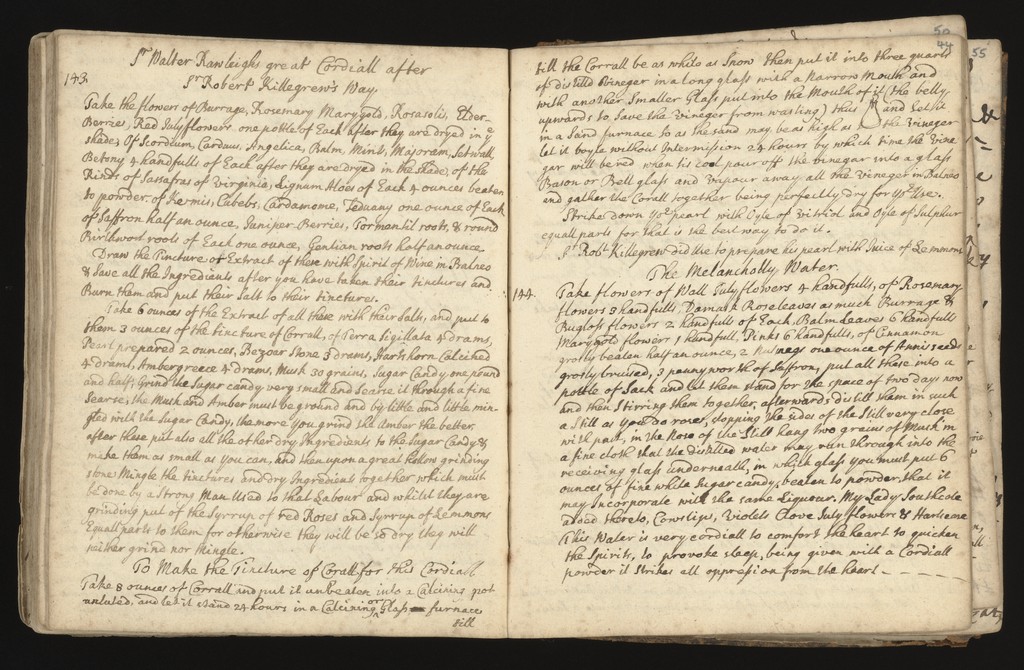 Sr Walter Rawleighs great Cordiall after
143 Sr Robert Killegrew's Way
Take the flowers of Burrage, Rosemary Marygold, Rosasolis, Elder-
Berries, Red Julyflowers one pottle of Each after they are dryed in ye
shade, Of Scordium, Carduus, Angelica, Balm, Mint, Majoram, Setwall,
Betony 4 handfulls of Each after they are dryed in the shade, of the
Rinds of Sassafras of Virginia, Lignum Aloes of Each 4 ounces beaten
to powder, of Kermis, Cubebs, Cardamome, Zeduany one ounce of Each
of Saffron half an ounce, Juniper-Berries, Tormantil roots, & round
Birthwort roots of Each one ounce, Gentian roots half an ounce
Draw the Tincture or Extract of these with Spirit of Wine in Balneo
& Save all the Ingredients after you have taken their tinctures and
Burn them and put their Salt to their tinctures.
Take 6 ounces of the Extract of all these with their Salts, and put to
them 3 ounces of the tincture of Corrall, of Terra Sigillata 4 drams,
Pearl prepared 2 ounces, Bezoar Stone drams, Hartshorn Calcined
4 drams, Ambergreece 4 drams, Musk 30 grains, Sugar Candy one pound
and half; Grind the Sugar candy very small and Searse it through a fine
Searse; the Musk and Amber must be ground and by little and little min-
gled with the Sugar Candy, the more you grind the Amber the better.
after these put also all the other dry Ingredients to the Sugar Candy &
make them as small as you can, and then upon a great grinding
stone Mingle the tinctures and dry Ingredients together which must
be done by a Strong Man Used to that Labour and whilst they are
grinding put of the Syrrup of red Roses and Syrrup of Lemmons
Equall parts to them for otherwise they will be so dry they will
neither grind nor Mingle.
To Make the Tincture of Corall for this Cordiall
Take 8 ounces of Corrall and put it unbeaten into a Calcining pot
unluted, and let it stand 24 hours in a Calcining or Glass furnace
till
50
44
till the Corrall be as white as Snow then put it into three quarts
of distilld Vineger in a long glass with a Narrow Mouth and
with another Smaller Glass put into the Mouth of it (the belly
upwards to Save the Vineger from wasting) thus and Let it
in a Sand furnace so as the sand may be as high as the Vineger
let it boyle without Intermission 24 hours by which time the Vine
gar will be red when tis cool pour off the vinegar into a glass
Bason or Bell glass and Vapour away all the Vineger in Balneo
and gather the Corall together being perfectly dry for yor Use.
Strike down yor pearl with Oyle of Vitriol and Oyle of Sulphur
equall parts for that is the best way to do it.
Sr Robt Killegrew did Use to prepare his pearl with Juice of Lemmons
The Melancholly Water.
144. Take flowers of Wall Julyflowers 4 handfulls, of Rosemary
flowers 3 handfulls, Damask Roseleaves as much Burrage &
Bugloss flowers 2 handfuls of Each, Balm Leaves 6 handfulls
Marygold flowers 1 handful, Pinks 6 handfulls, of Cinnamon
grosly beaten half an ounce, 2 Nutmegs one ounce of Anniseeds
grosly bruised, 3 pennyworth of Saffron, put all these into a
pottle of Sack and let them stand for the space of two days now
and then Stirring them together, afterwards distill them in such
a Still as you do roses, stopping the sides of the Still very close
with past, in the Nose of the Still hang two grains of Musk in
a fine cloth that the distilled water may run through into the
receiving glass underneath, in which glass you must put 6
ounces of fine white Sugar candy, beaten to powder, that it
may Incorporate with the same Liqueur. My Lady Southcote
added thereto, Cowslips, Violets Clove Julyflowers & Hartstone
This Water is very cordiall to comfort the heart to quicken
the Spirits, to provoke sleep, being given with a Cordiall
powder it Strikes all oppression from the heart
55